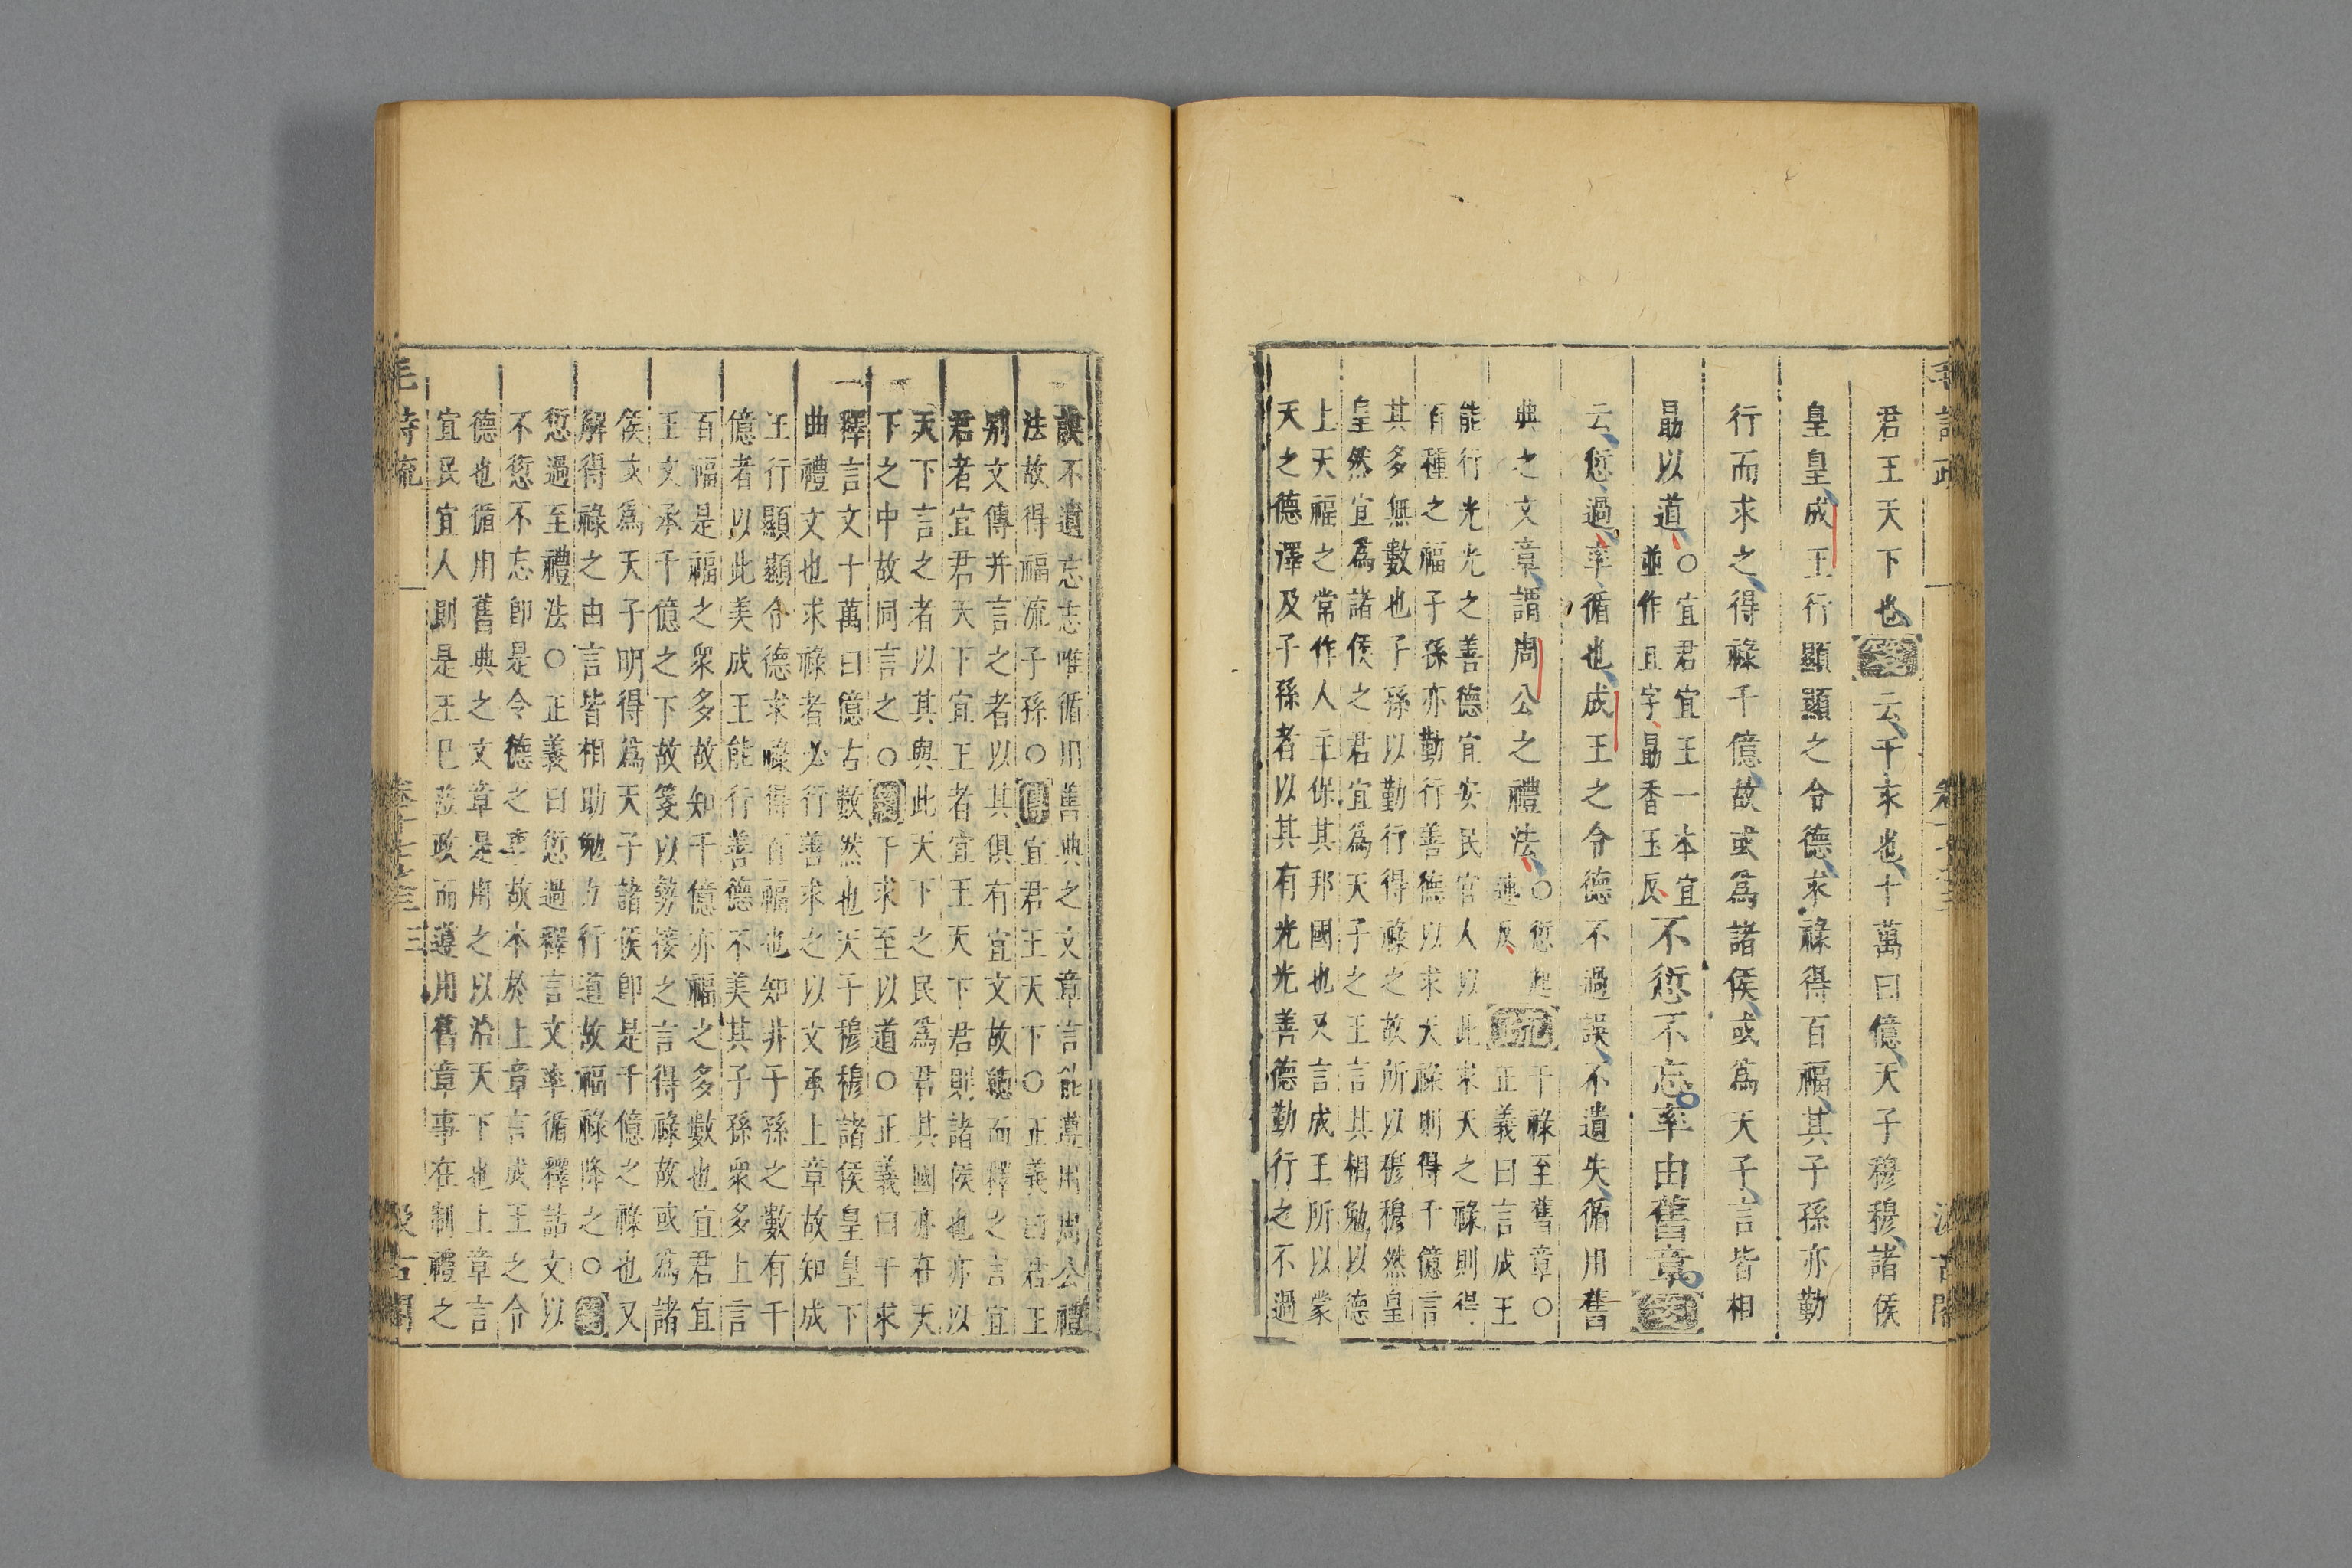 君王天下也箋云干求也十萬曰億天子穆穆諸侯
皇皇成王行顯顯之令德求祿得百福其子孫亦勤
行而求之得祿千億故或爲諸侯或爲天子言皆相
勗以道○宜君宜王一本宜
並作且字勗香玉反不愆不忘率由舊章箋
云愆過率循也成王之令德不過誤不遺失循用舊
典之文章謂周公之禮法○愆起
連反疏干祿至舊章○
正義曰言成王
能行光光之善德宜安民官人以此求天之祿則得
百種之福子孫亦勤行善德以求天祿則得千億言
其多無數也子孫以勤行得祿之故所以穆穆然皇
皇然宜爲諸侯之君宜爲天子之王言其相勉以德
上天福之常作人主保其邦國也又言成王所以蒙
天之德澤及子孫者以其有光光善德勤行之不過
誤不遺忘志唯循用舊典之文章言能遵用周公禮
法故得福流子孫○傳宜君王天下○正義曰君王
別文傳并言之者以其俱有宜文故總而釋之言宜
君者宜君天下宜王者宜王天下君則諸侯也亦以
天下言之者以其與此天下之民爲君其國亦在天
下之中故同言之○箋干求至以道○正義曰干求
釋言文十萬曰億古數然也天子穆穆諸侯皇皇下
曲禮文也求祿者必行善求之以文承上章故知成
王行顯顯令德求祿得百福也知非子孫之數有千
億者以此美成王能行善德不美其子孫衆多上言
百福是福之衆多故知千億亦福之多數也宜君宜
王文承千億之下故箋以勢接之言得祿故或爲諸
侯或爲天子明得爲天子諸侯即是千億之祿也又
解得祿之由言皆相助勉力行道故福祿降之○箋
愆過至禮法○正義曰愆過釋言文率循釋詁文以
不愆不忘即是令德之事故本於上章言成王之令
德也循用舊典之文章是周之以治天下也上章言
宜民宜人則是王巳施政而遵用舊章事在制禮之
毛詩疏
三